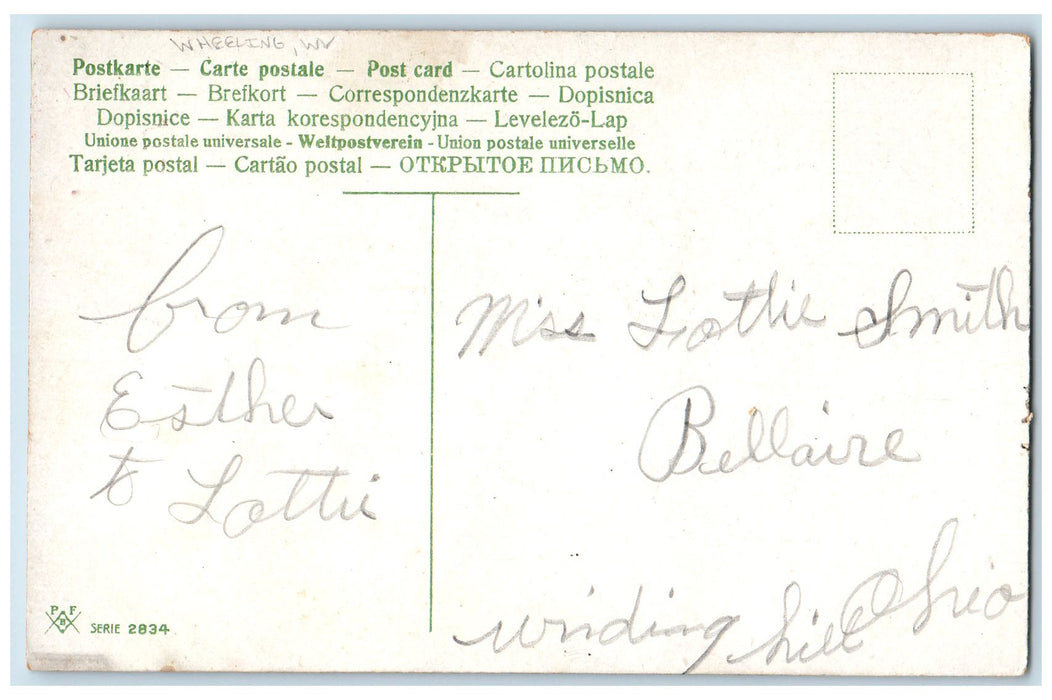 WHEELING, WV
Postkarte — Carte postale — Post card — Cartolina postale
Briefkaart — Brefkort — Correspondenzkarte — Dopisnica
Dopisnice — Karta korespondencyjna — Levelezö-Lap
Unione postale universale - Weltpostverein - Union postale universelle
Tarjeta postal — Cartão postal — ОТКРЫТОЕ ПИСЬМО.
from
Esther
to Lottie
Miss Lottie Smith
Bellaire
Ohio
winding hill
P F
B
SERIE 2834